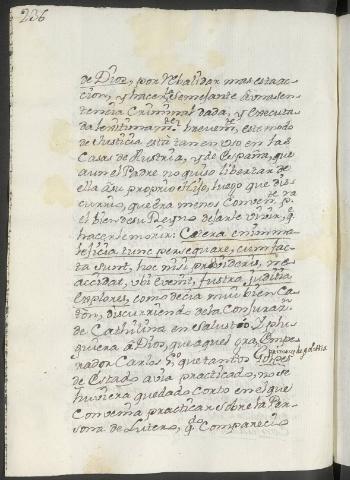 206
de Dios, por Validar mas esta ac-
cion, y hacerla semejante à una sen-
tencia Criminal dada, y executa-
da legitimamte. brevemte. este modo
de Justicia està tan en uso en las
Casas de Austria, y de España, que
aun el Padre no quiso libertar de
ella à su proprio Hijo, luego que dis-
currio, que era menos Convente. pa.
el bien de su Reyno dejarle vivir, q̃
hacerle morir: Cetera enim ma-
leficia tunc persequare, cum fac-
ta sunt, hoc nisi provideris, ne
accidat, ubi evenit, frustra juditia
implores, como decia mui bien Ca-
ton, discurriendo de la Conjuraon.
de Cathilina en Salustio. Y plu-
guiera à Dios, que aquel gran Empe-
rador Carlos 5º. que tantos Golpes
de Estado avia practicado, no se
huviera quedado Corto en el que
Convenia practicar sobre la Per-
sona de Lutero, qdo. Comparecio